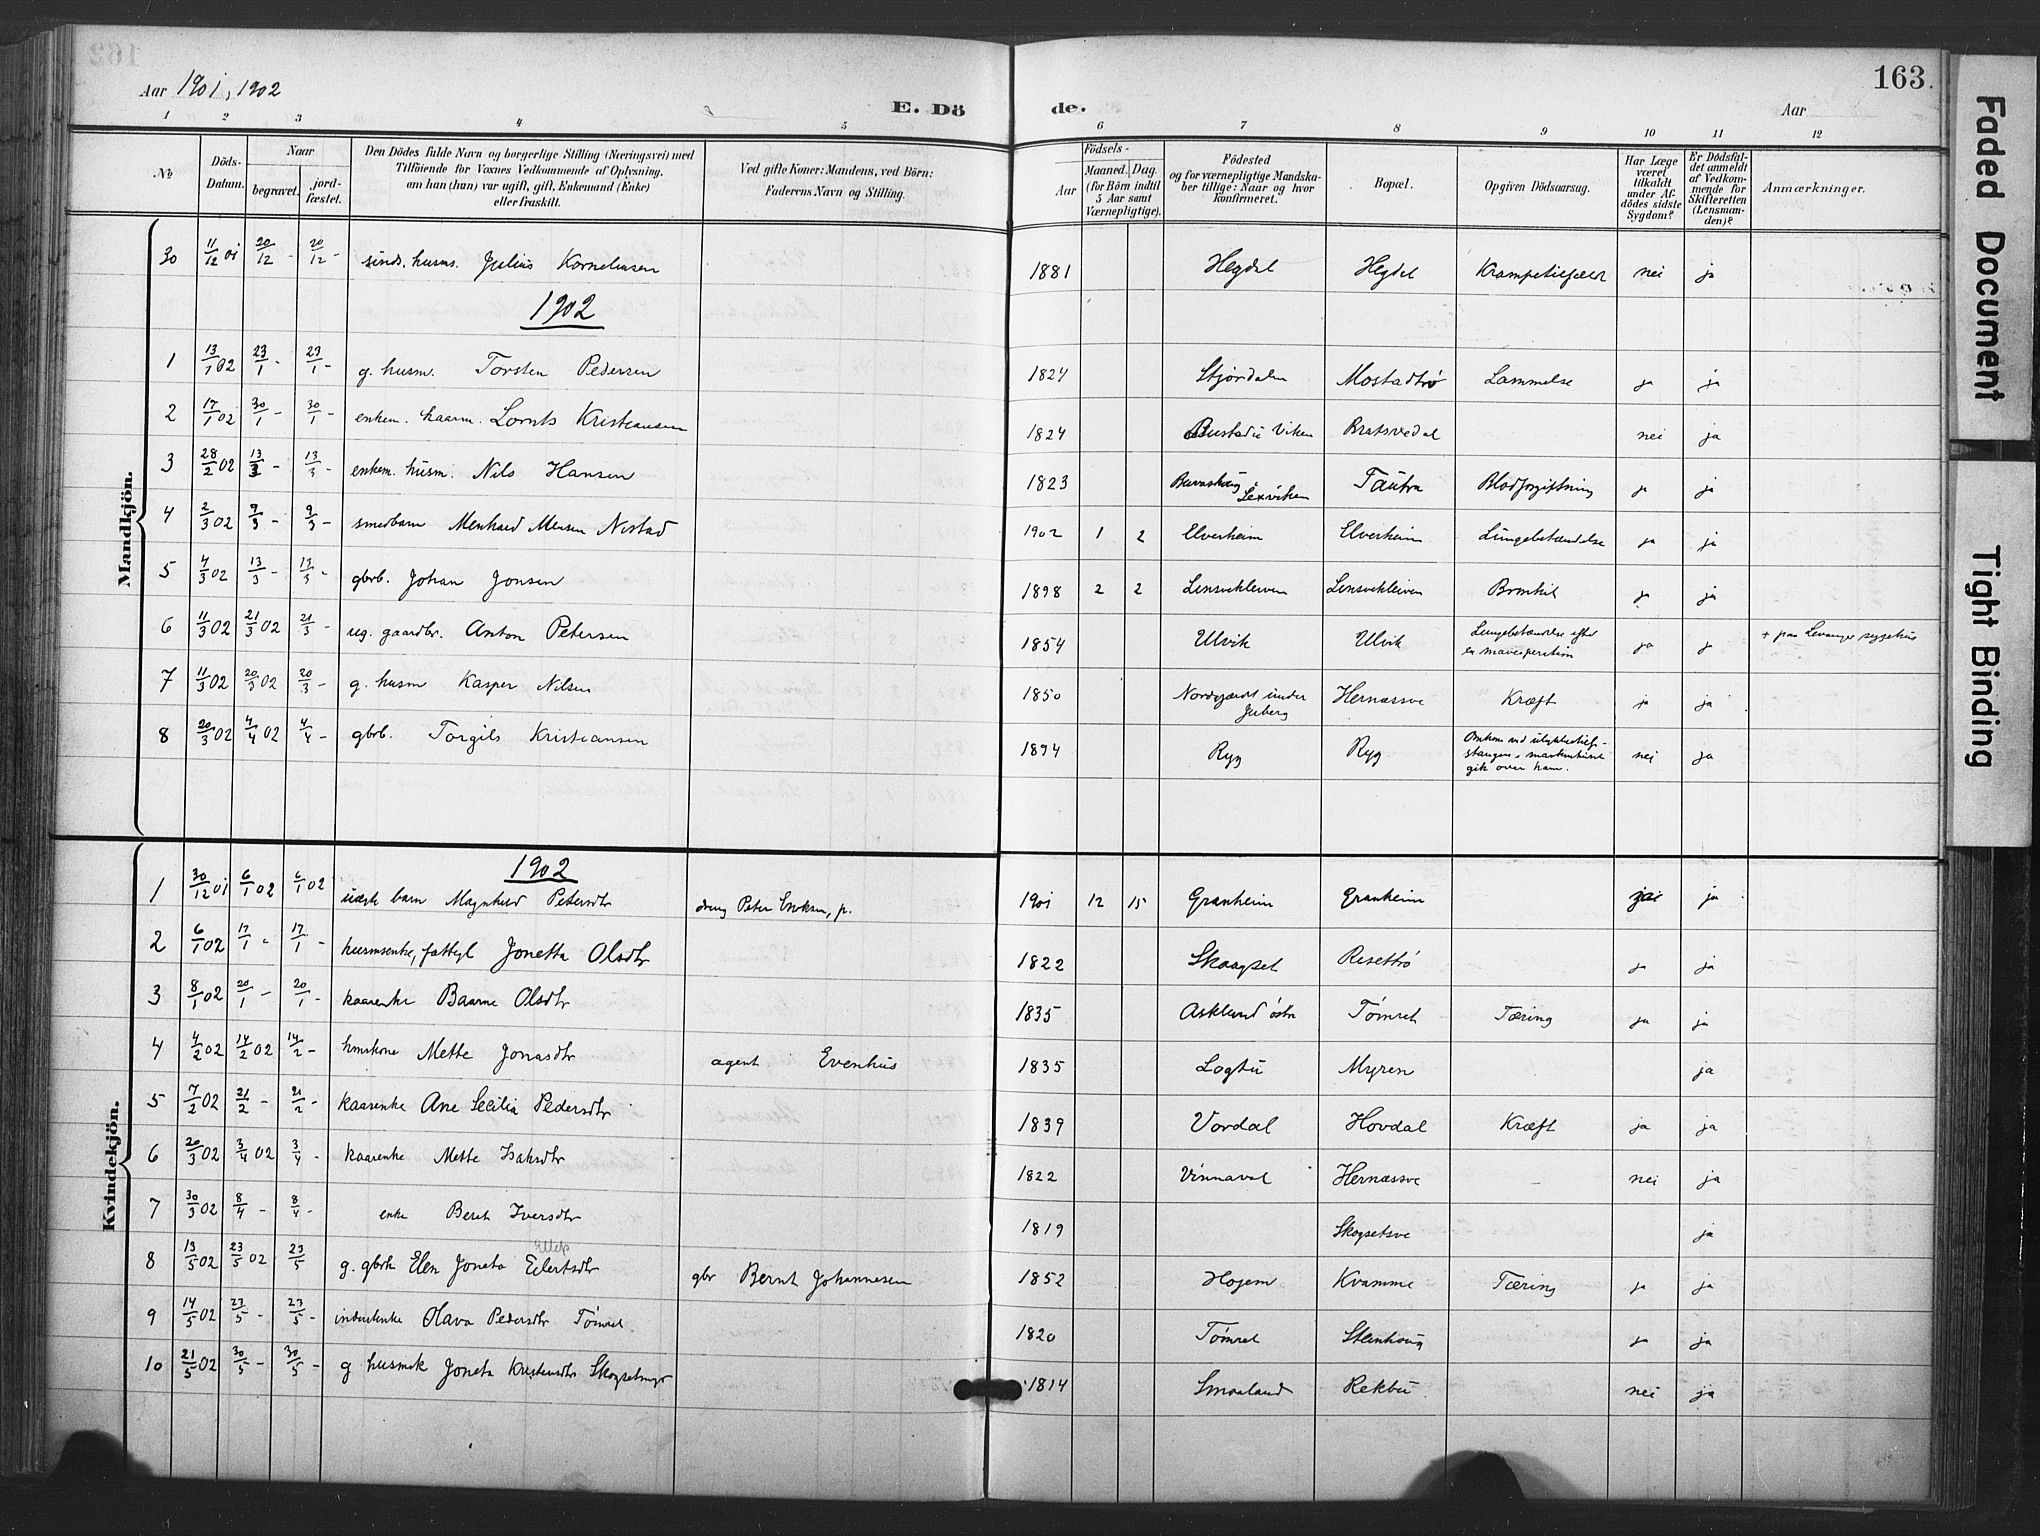 163.
Aar 1901, 1902
E. Dö de.
Aar
1 2 3 4 5 6 7 8 9 10 11 12
№
Döds-Datum.
Naar
begravet.
jord-fæstet.
Den Dödes fulde Navn og borgerlige Stilling (Næringsvei) med
Tilföiende for Voxnes Vedkommende af Oplysning,
om han (hun) var ugift, gift, Enkemand (Enke)
eller fraskilt.
Ved gifte Koner: Mandens, ved Börn:
Faderens Navn og Stilling.
Födsels-
Aar
Maaned. Dag.
(for Börn indtil
5 Aar samt
Værnepligtige).
Födested
og for værnepligtige Mandska-
ber tillige: Naar og hvor
konfirmeret.
Bopæl.
Opgiven Dödsaarsag.
Har Læge
været
tilkaldt
under Af-
dödes sidste
Sygdom?
Er Dödsfal-
det anmeldt
af Vedkom-
mende for
Skifteretten
(Lensman-
den)?
Anmærkninger.
Mandkjön.
30 11/12 01 20/12 - 20/12 - sinds. husms. Julius Kornelius​en 1881 Hegdal Hegdal Krampetilfæld nei ja
1902
1 13/1 02 23/1 - 23/1 - g. husm. Torsten Pedersen 1824 Stjørdalen Mostadtrø Lammelse ja ja
2 17/1 02 30/1 - 30/1 - enkem. kaarm. Lornts Kristiansen 1824 Bustad i Viken Bratsvedal nei ja
3 28/2 02 13/3 - 13/3 - enkem. husm. Nils Hansen 1823 Lexviken Tautra Blodforgiftning ja ja
4 2/3 02 9/3 - 9/3 - smedbarn Menhard Nestad 1902 1 2 Elverheim Elverheim Lungebetændelse ja ja
5 4/3 02 13/3 - 13/3 - gbrb. Johan Jonsen 1898 2 2 Lensvekleiven Lensvekleiven Bronkit ja ja
6 11/3 02 21/3 02 21/3 - ug. gaardbr. Anton Petersen 1854 Ulvik Ulvik Lungebetændelse efter
en maveoperation ja ja + paa Levanger sygehus
7 11/3 02 20/3 02 20/3 - g. husm Kasper Nilsen 1850 Nordgjærdt under
Juberg Hernæssve Kræft ja ja
8 20/3 02 4/4 02 4/4 - gbrb. Torgils Kristiansen 1894 Ryg Ryg Omkom ved ulykkestilf.-
gik over ham. nei ja
Kvindekjön.
1902
1 30/12 01 6/1 02 6/1 02 uægte barn Magnhild Petersdtr dreng Peter Eriksen, p. 1901 12 15 Granheim Granheim ja
2 6/1 02 17/1 - 17/1 - husmsenke, fattigl Jonetta Olsdtr 1822 Skaagset Resettrø ja ja
3 8/1 02 20/1 - 20/1 - kaarenke Baarne Olsdtr 1835 Asklund østre Tømret Tæring ja ja
4 4/2 02 14/2 02 14/2 - hmskone Mette Jonasdtr agent Evenhus 1835 Logtu Myren ja
5 7/2 02 21/2 - 21/2 - kaarenke Ane Secilia Pedersdtr 1839 Vordal Hovdal Kræft ja ja
6 20/3 02 3/4 02 3/4 - kaarenke Mette Isaksdtr 1822 Vinnaval Hernæssve - nei ja
7 30/3 02 8/4 - 8/4 - enke Beret Iversdtr 1819 Skogsetsve ja
8 13/5 02 23/5 02 23/5 g. gbrk Elen Joneta Eilertsdtr gbr Bernt Johannesen 1852 Hojem Kvamme Tæring ja ja
9 14/5 02 23/5 - 23/5 - inderstenke Olava Pedersdtr Tømret 1820 Tømret Stenhoug ja ja
10 21/5 02 30/5 - 30/5 - g husmk Joneta Kristensdtr Skogsetmyr 1814 Smaaland Rekbu nei ja
Faded Document
Tight Binding